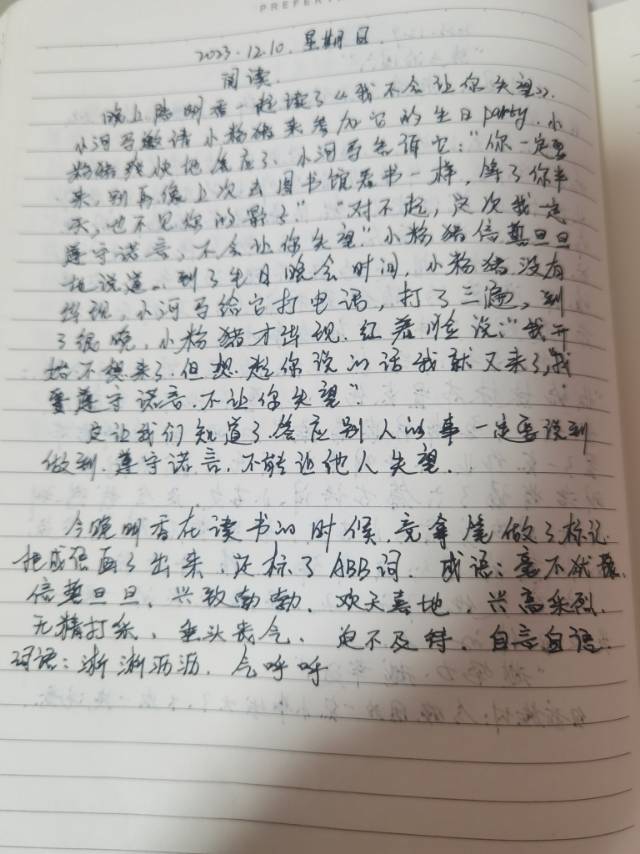 PREFER
2023.12.10.星期日.
阅读.
晚上陪明香一起读了《我不会让你失望》.
小河马邀请小粉猪来参加它的生日party.小
粉猪爽快地答应了.小河马告诉它:"你一定要
来,别再像上次去图书馆看书一样,等了你半
天,也不见你的影子.""对不起,这次我一定
遵守诺言,不会让你失望."小粉猪信誓旦旦
地说道.到了生日晚会时间,小粉猪没有
出现,小河马给它打电话,打了三遍,到
了很晚,小粉猪才出现.红着脸说:"我开
始不想来了.但想起你说的话我就又来了,我
要遵守诺言.不让你失望"
这让我们知道了答应别人的事一定要说到
做到.遵守诺言.不能让他人失望.
今晚明香在读书的时候,竟拿笔做了标记
把成语画了出来,还标了ABB词.成语:毫不犹豫.
信誓旦旦,兴致勃勃.欢天喜地,兴高采烈.
无精打采,垂头丧气.迫不及待.自言自语.
词语:淅淅沥沥.气呼呼